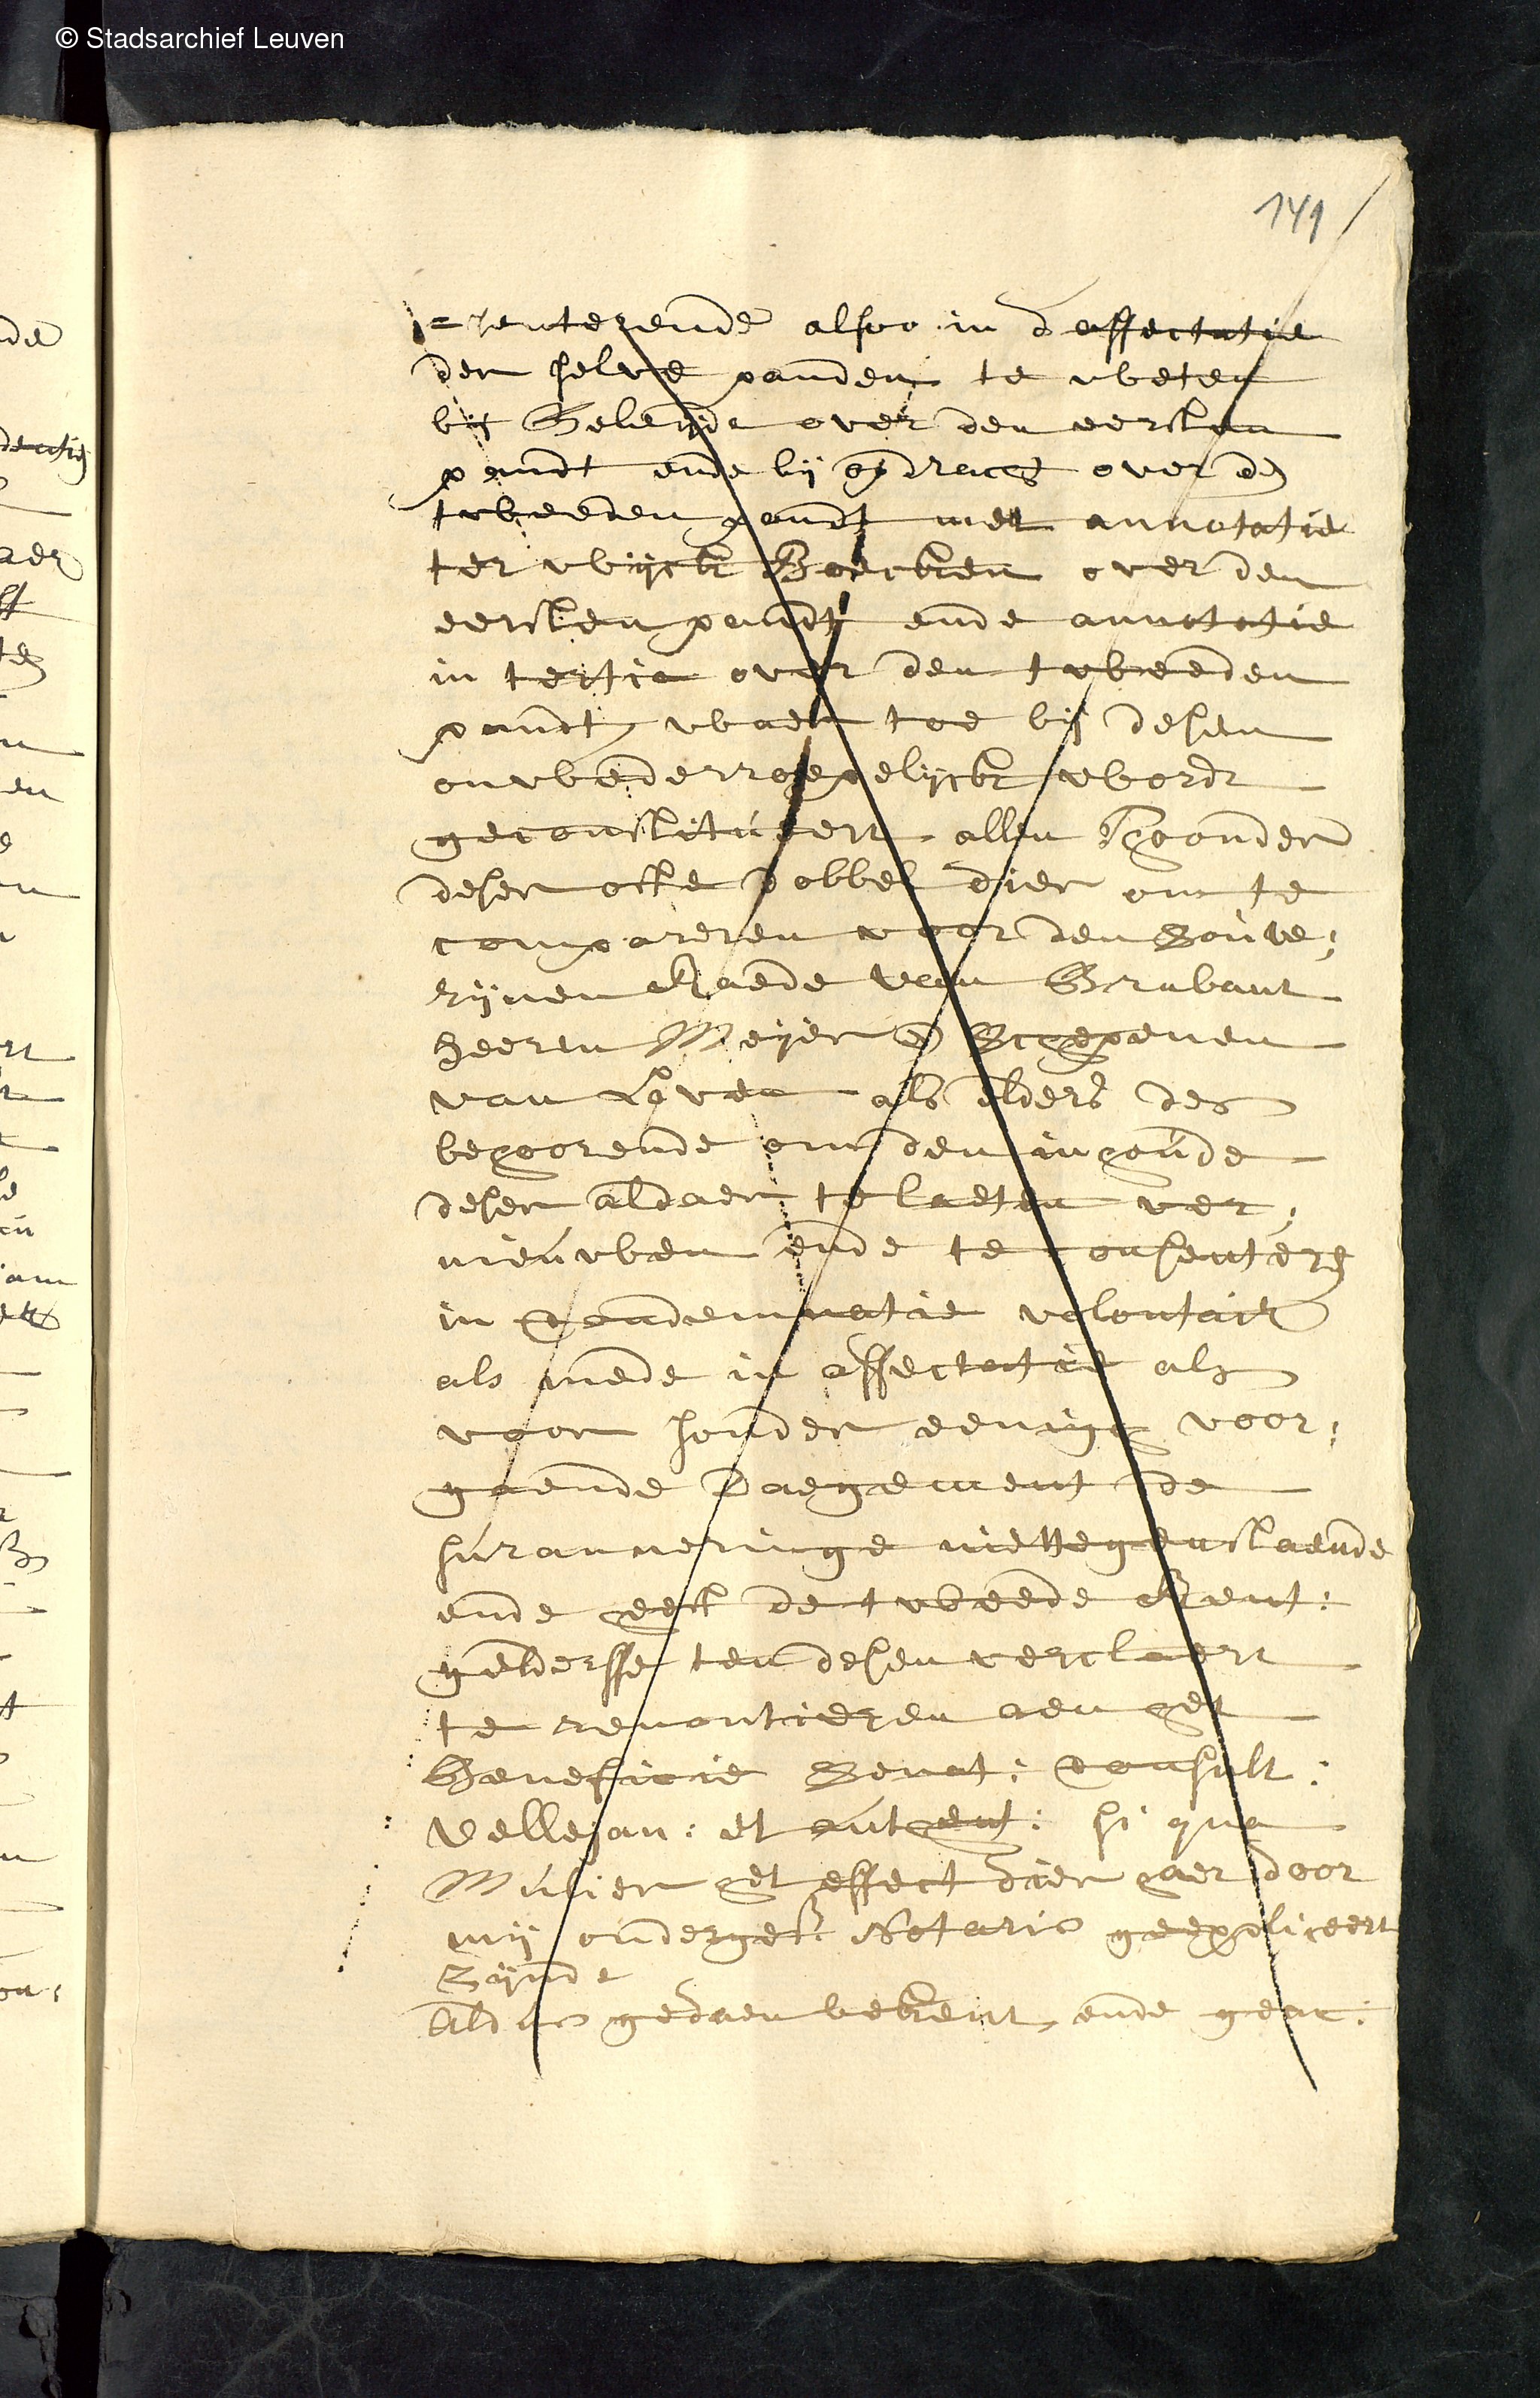 © Stadsarchief Leuven
141
=renterende alsoo in d'affectatie
der selve panden te weten
bij Beleyde over den eersten
pandt ende bij opdracht over den
tweeden pandt met annotatie
ter wijck Boecken over den
eersten pandt ende annotatie
in tertia over den tweeden
pandt, waer toe bij desen
onwederroepelijck wordt
geconstitueert allen Thoonder
deser ofte dobbel dier om te
compareren voor den Souve:
rijnen Raede van Brabant
heeren Meijer en Schepenen
van Loven als elders des
behoorende om den inhoude
deser aldaer te laeten ver:
nieuwen ende te consenteren
in Condemnatie volontair
als mede in affectatie als
voor sonder eenige voor:
gaende Daegement de
suranneringe niettegenstaende
ende heeft de tweede Rent:
geldersse ten desen verclaert
te renontieren aen het
Beneficie Senat: Consult:
Vellejan: et authent: si qua
Mulier het effect dier haer door
mij onderget: Notaris geexpliceert
Zijnde
Aldus gedaen bekent, ende geac: